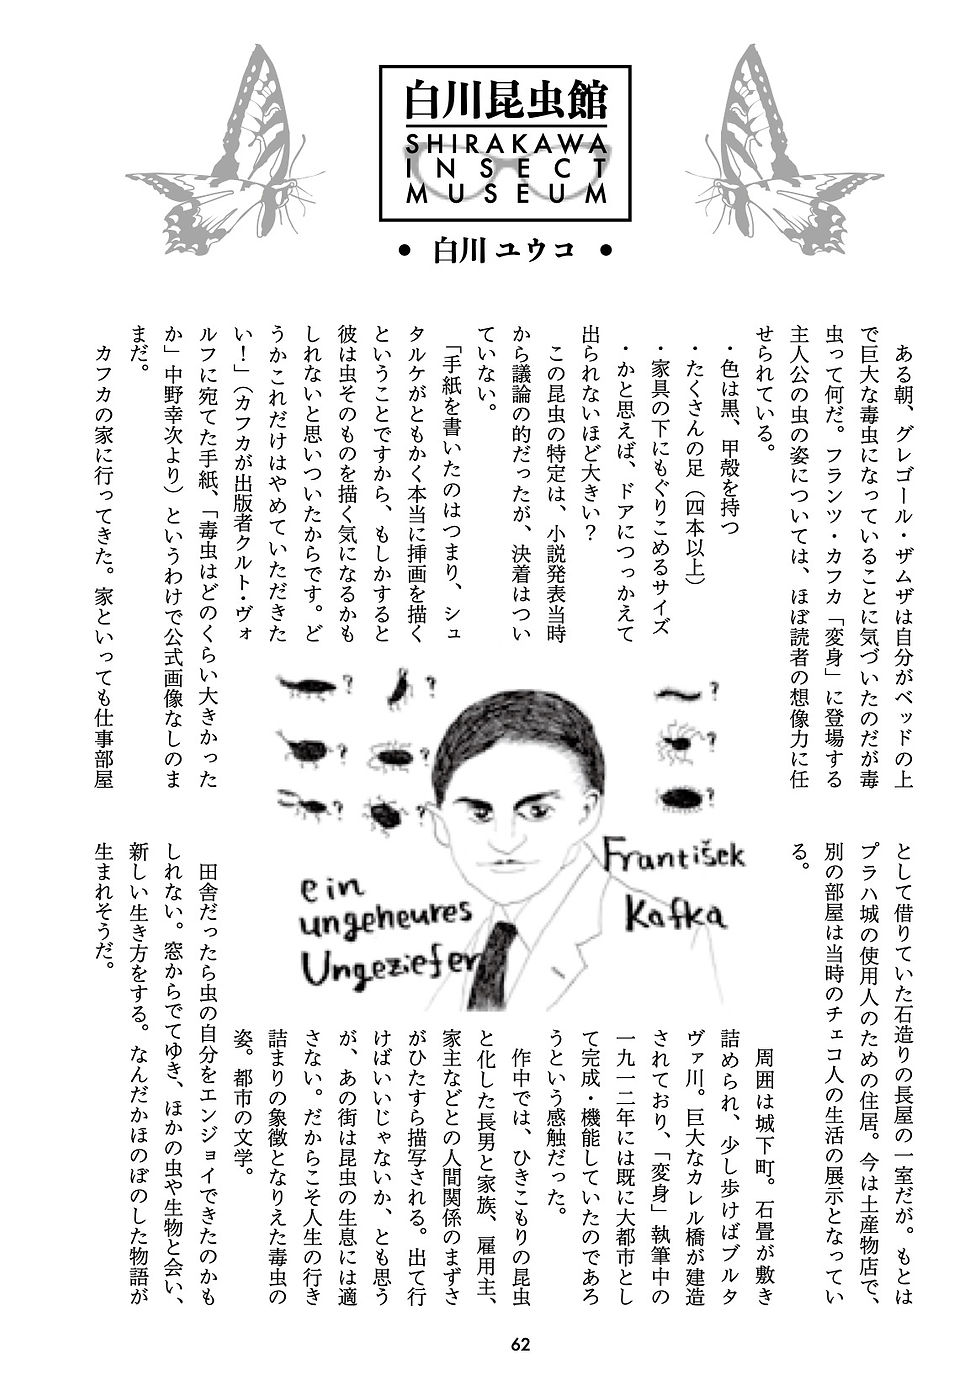 白川昆虫館
SHIRAKAWA
INSECT
MUSEUM
・白川ユウコ・
ある朝、グレゴール・ザムザは自分がベッドの上
で巨大な毒虫になっていることに気づいたのだが毒
虫って何だ。フランツ・カフカ「変身」に登場する
主人公の虫の姿については、ほぼ読者の想像力に任
せられている。
・色は黒、甲殻を持つ
・たくさんの足（四本以上）
・家具の下にもぐりこめるサイズ
・かと思えば、ドアにつっかえて
出られないほど大きい？
この昆虫の特定は、小説発表当時
から議論の的だったが、決着はつい
ていない。
「手紙を書いたのはつまり、シュ
タルケがともかく本当に挿画を描く
ということですから、もしかすると
彼は虫そのものを描く気になるかも
しれないと思いついたからです。ど
うかこれだけはやめていただきた
い！」（カフカが出版者クルト・ヴォ
ルフに宛てた手紙、「毒虫はどのくらい大きかった
か」中野幸次より）というわけで公式画像なしのま
まだ。
カフカの家に行ってきた。家といっても仕事部屋
として借りていた石造りの長屋の一室だが。もとは
プラハ城の使用人のための住居。今は土産物店で、
別の部屋は当時のチェコ人の生活の展示となってい
る。
周囲は城下町。石畳が敷き
詰められ、少し歩けばブルタ
ヴァ川。巨大なカレル橋が建造
されており、「変身」執筆中の
一九一二年には既に大都市とし
て完成・機能していたのであろ
うという感触だった。
作中では、ひきこもりの昆虫
と化した長男と家族、雇用主、
家主などとの人間関係のまずさ
がひたすら描写される。出て行
けばいいじゃないか、とも思う
が、あの街は昆虫の生息には適
さない。だからこそ人生の行き
詰まりの象徴となりえた毒虫の
姿。都市の文学。
田舎だったら虫の自分をエンジョイできたのかも
しれない。窓からでてゆき、ほかの虫や生物と会い、
新しい生き方をする。なんだかほのぼのした物語が
生まれそうだ。
?
?
?
?
?
?
?
?
?
František
Kafka
ein
ungeheures
Ungeziefer
62